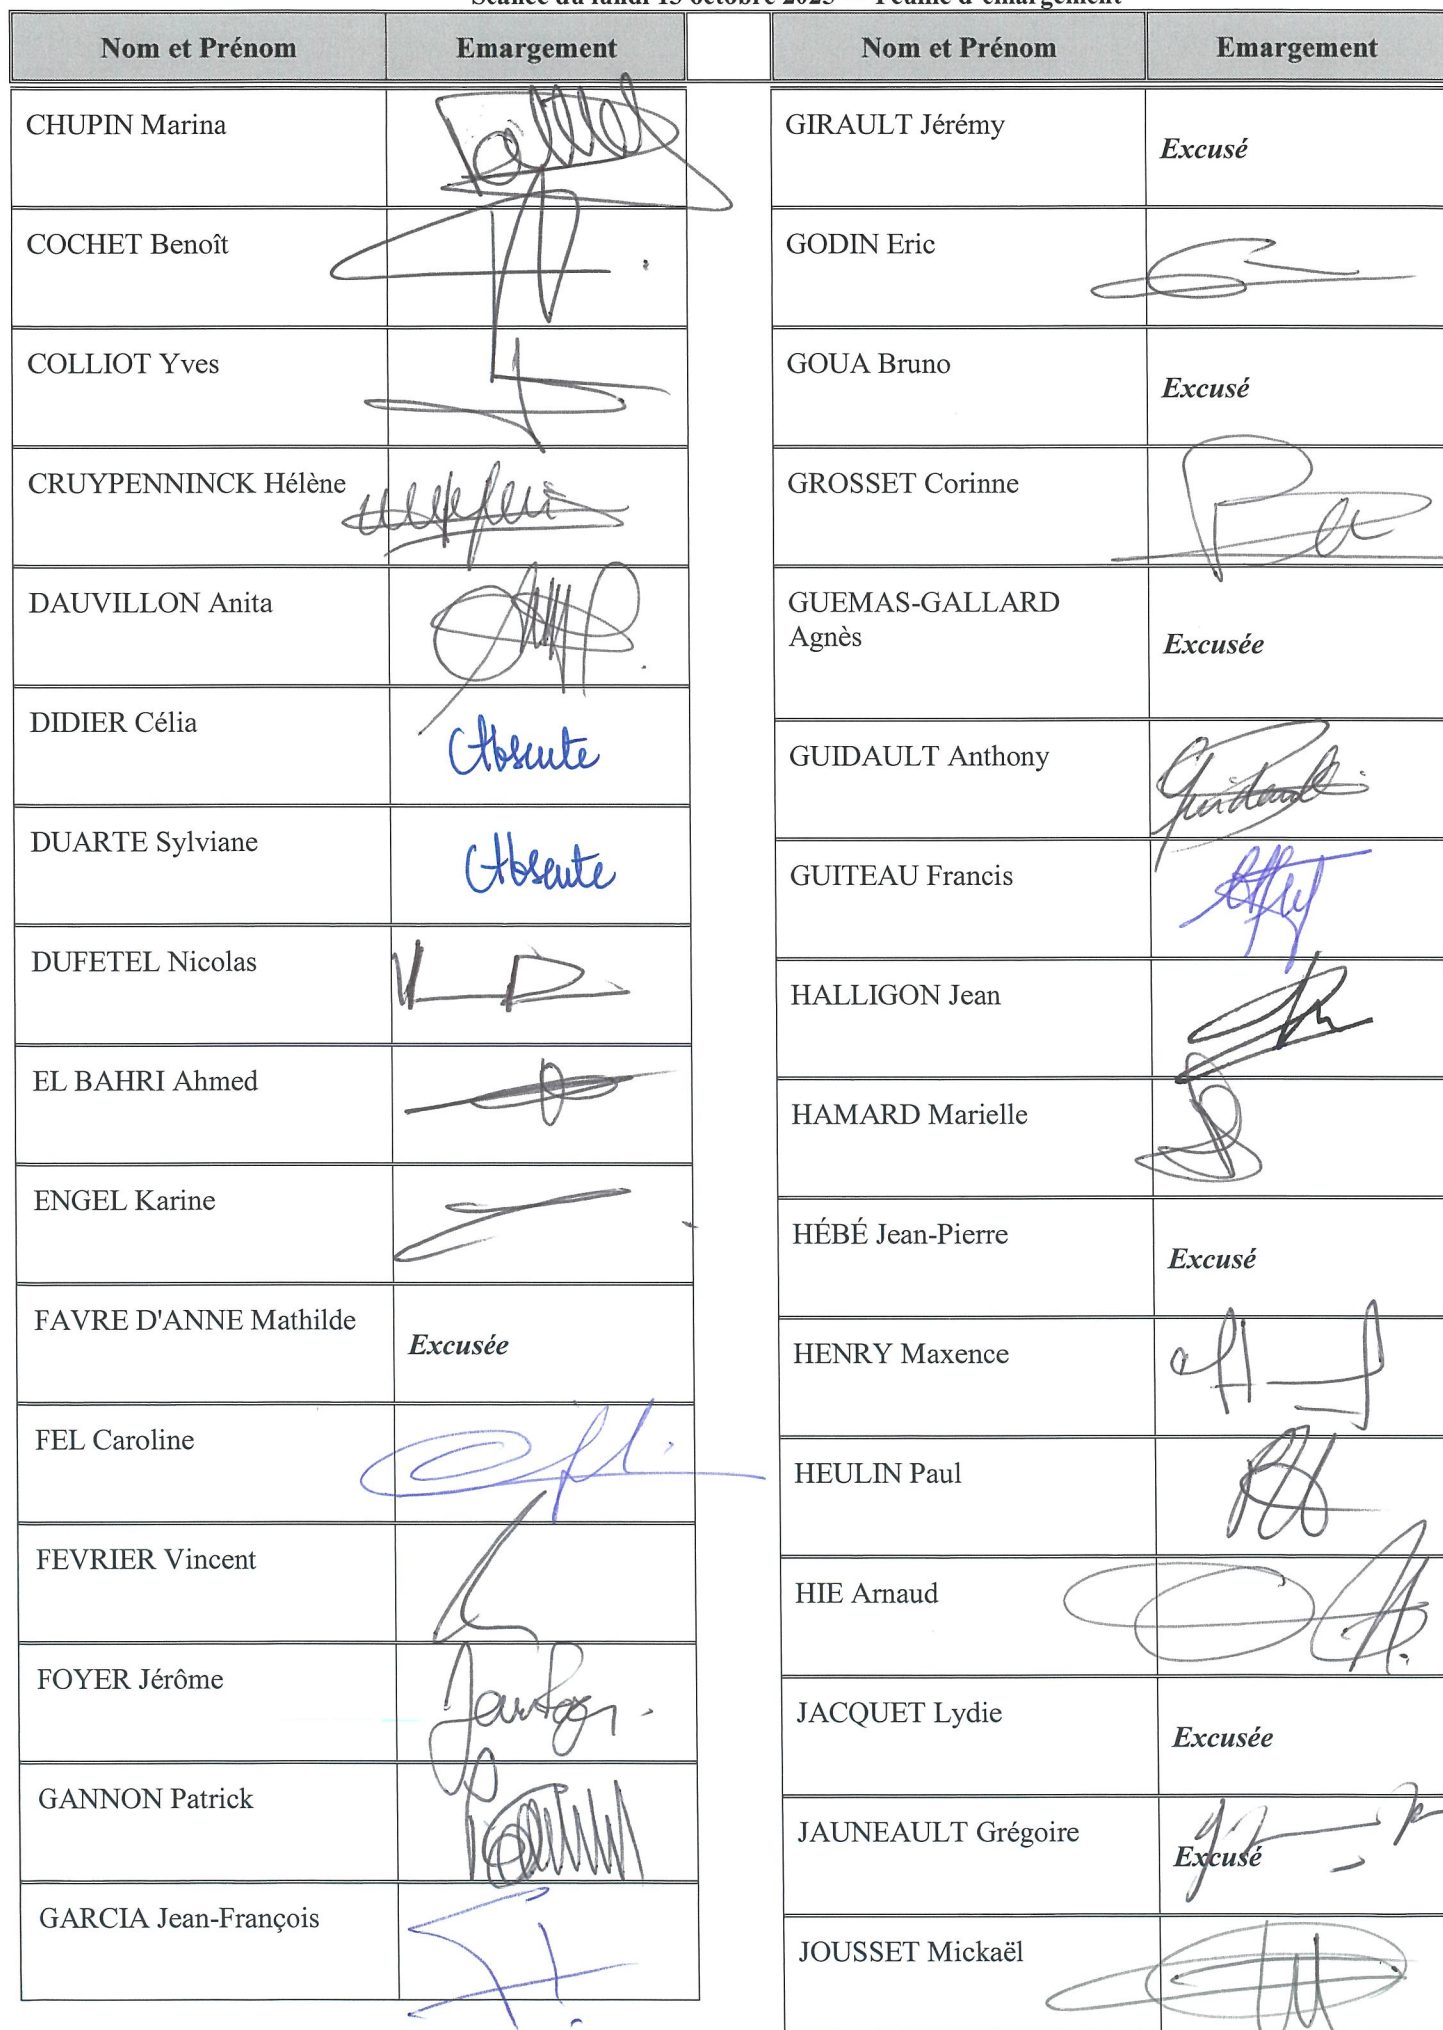 Séance du lundi 13 octobre 2025 — Feuille d'émargement
Nom et Prénom Emargement
CHUPIN Marina
COCHET Benoît
COLLIOT Yves
CRUYPENNINCK Hélène
DAUVILLON Anita
DIDIER Célia Absente
DUARTE Sylviane Absente
DUFETEL Nicolas
EL BAHRI Ahmed
ENGEL Karine
FAVRE D'ANNE Mathilde Excusée
FEL Caroline
FEVRIER Vincent
FOYER Jérôme
GANNON Patrick
GARCIA Jean-François
Nom et Prénom Emargement
GIRAULT Jérémy Excusé
GODIN Eric
GOUA Bruno Excusé
GROSSET Corinne
GUEMAS-GALLARD
Agnès Excusée
GUIDAULT Anthony Guidault
GUITEAU Francis
HALLIGON Jean
HAMARD Marielle
HÉBÉ Jean-Pierre Excusé
HENRY Maxence
HEULIN Paul
HIE Arnaud
JACQUET Lydie Excusée
JAUNEAULT Grégoire Excusé
JOUSSET Mickaël